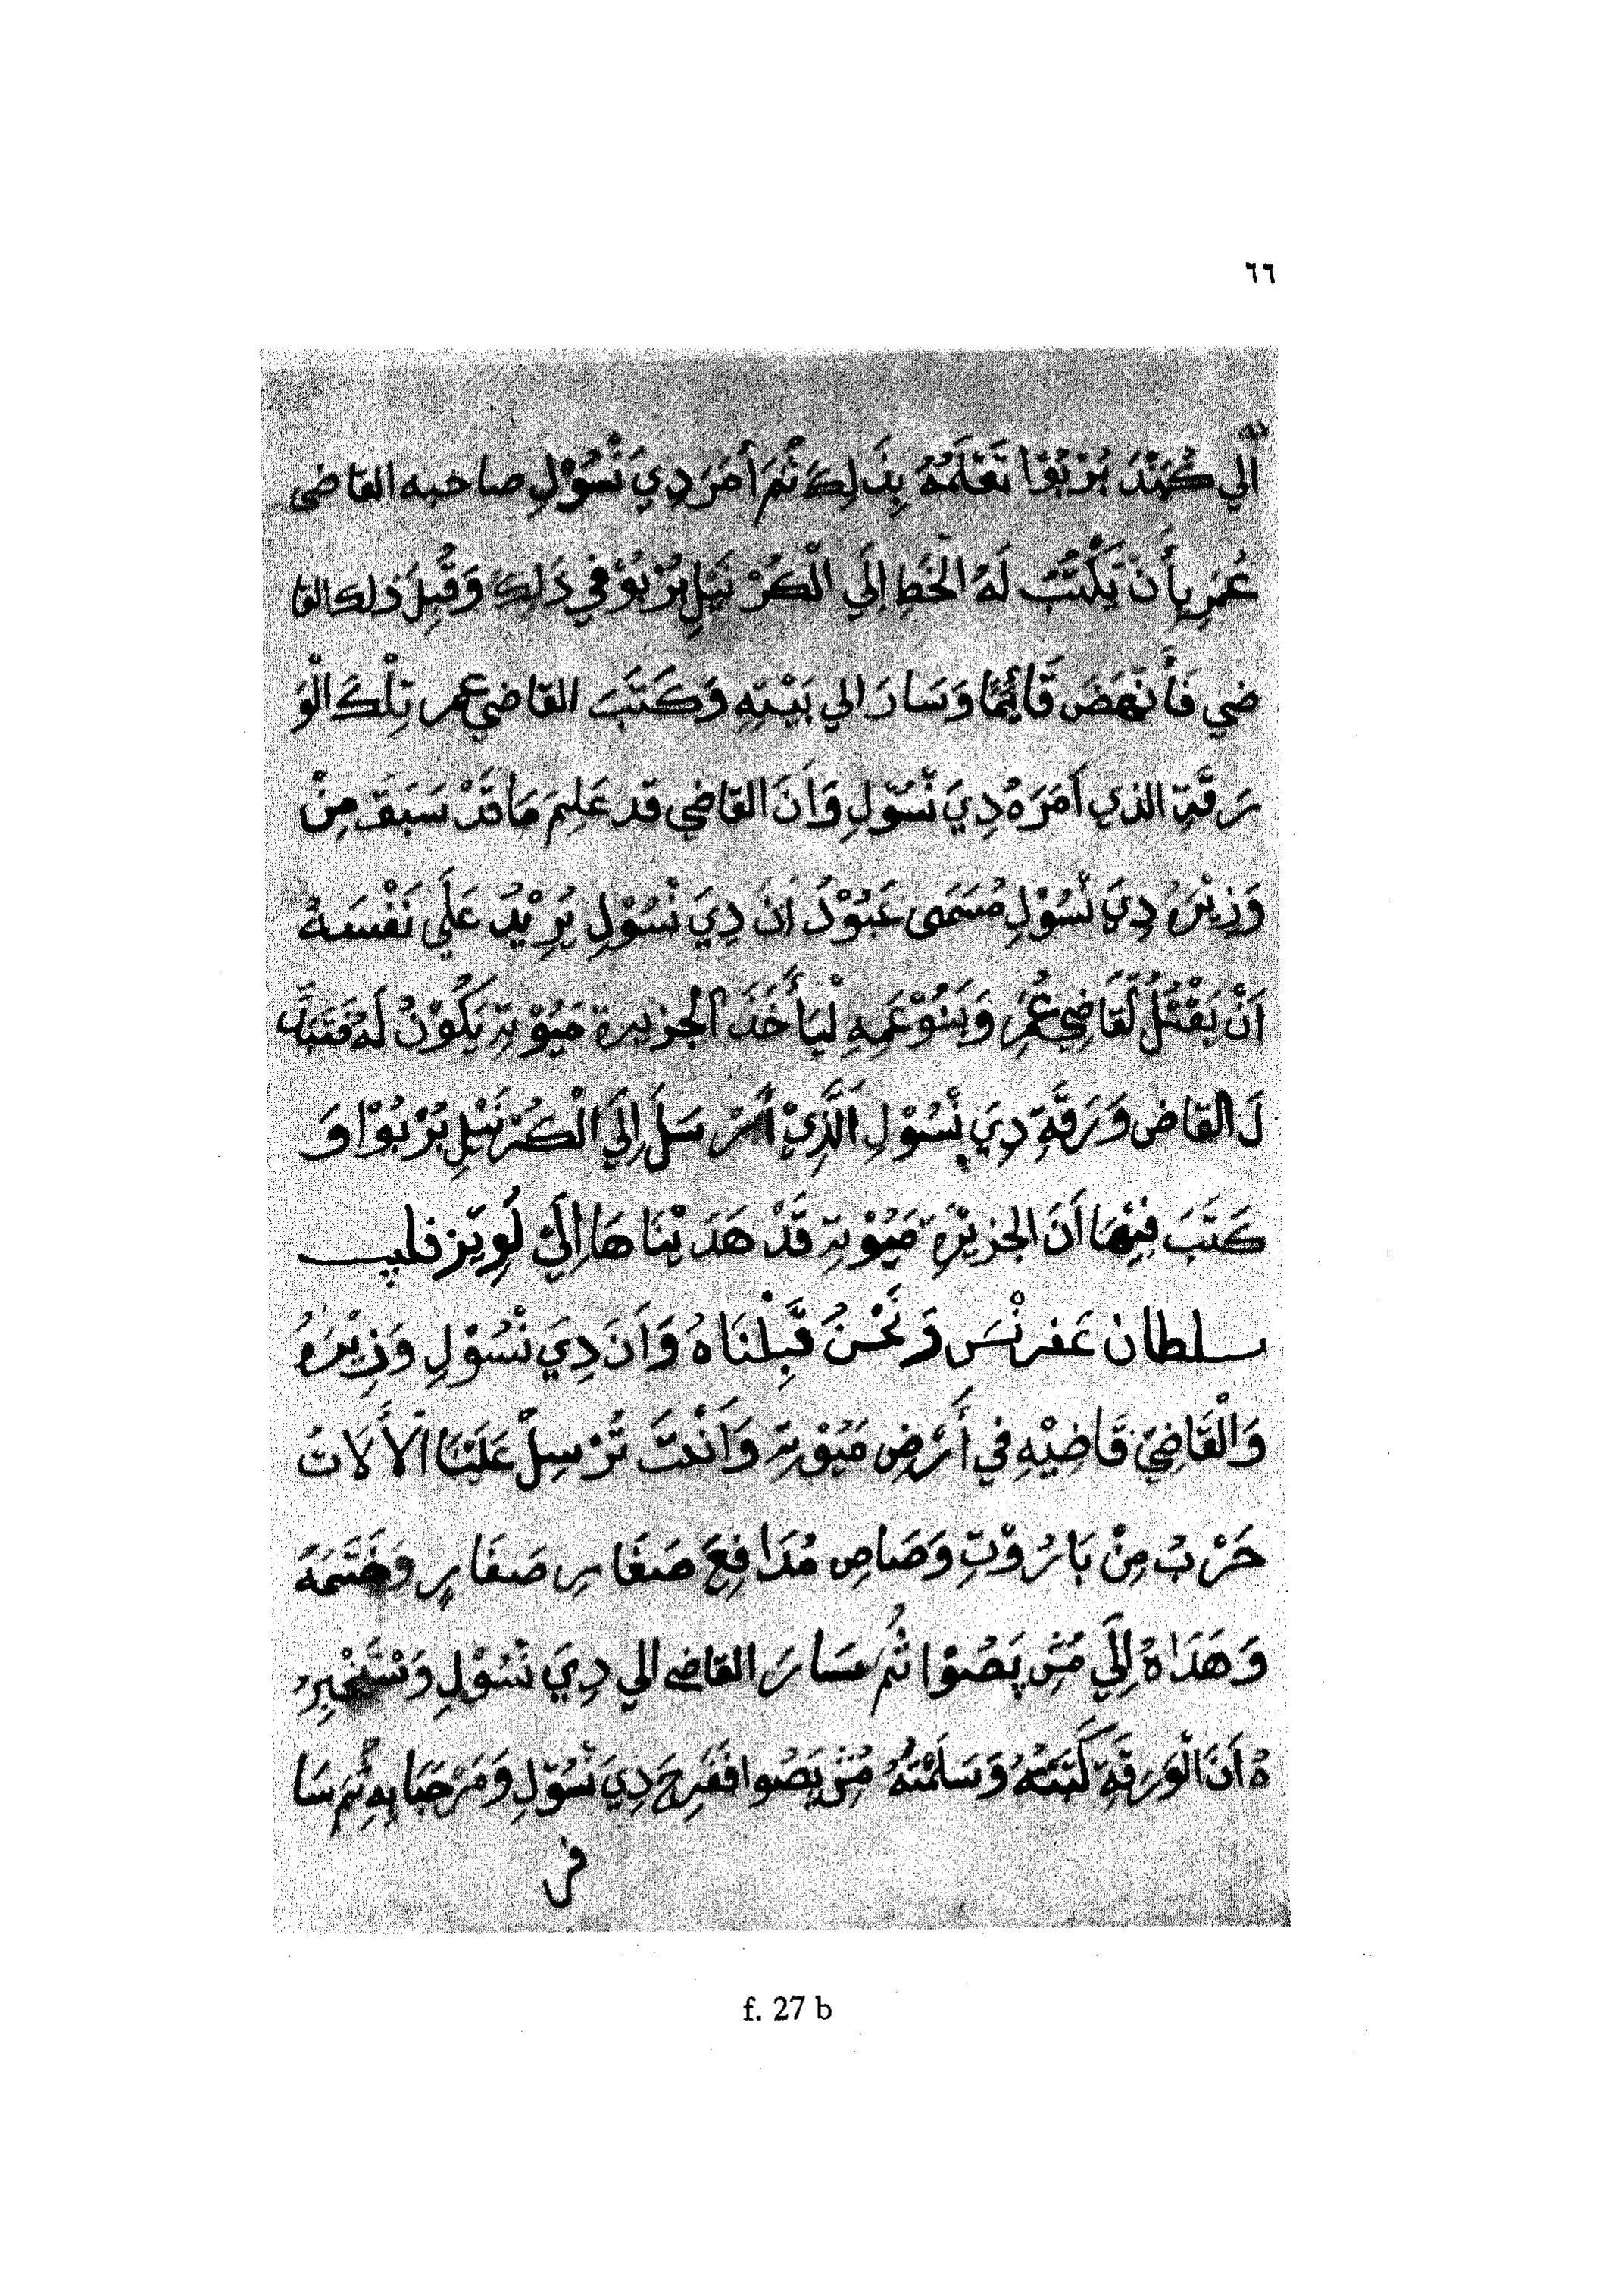 ٦٦
الي كُمَنْدَ بُرْبُوْا تَعْلَمُهُ بِذَلِكَ ثُمَ أَمَرَ دِيَ نْسُوْلِ صاحبه القاضى
عُمَرِ بِأَن يَكْتُبَ لَهُ الْخَطِ إِلَي الْكُرْنَيْلِ بُرْبُوْ في ذَلِكَ وَقُبِلَ ذلك القا
ضي فَأَنهَضَ قَائِمًا وَسَارَ الي بَيْتِهِ وَكَتَبَ القاضي عمر تِلْكَ الْوَ
رَقَةِ الذي اَمَرَهُ دِيَ نْسُوْلِ وَاَنَ القاضي قد عَلِمَ مَا قَدْ سَبَقَ مِنْ
وَزِيْرُ دِيَ نْسُوْلِ مُسَمَى عَبُوْدُ اَنَ دِيَ نْسُوْلِ يُرِيْدُ عَلَي نَفْسَهُ
اَنْ يَقْتُلُ لْقَاضِي عُمَرِ وَبَنُوْ عَمِهِ لْيَأَخُذَ الجزيرة مَيُوْتِةِ يَكُوْنُ لَهُ فَتَبَدَّ
لَ القاض وَرَقَةِ دِيَ نْسُوْلِ الَّذِيْ اَرْسَلَ إِلَيَ الْكُرْنَيْلِ بُرْبُوْا وَ
كَتَبَ فِيْهَا اَنَ الجزيْرَةِ مَيُوْتِةِ قَدْ هَدَيْنَاهَا اِلَيْ لُوِيْز فليپ
سلطان عَفرنْسَ وَنَحْنُ قَبِلْنَاهُ وَاَنَ دِيَ نْسُوْلِ وَزِيْرَهُ
وَالْقَاضِيَ قَاضِيْهِ في أَرْضِ مَيُوْتِةِ وَاَنْتَ تُرْسِلْ عَلَيْنَا الأَلَاتُ
حَرْبُ مِنْ بَارُوْتِ وَصَاصِ مُدَافِعَ صَغَارِ صَغَارٍ وَخَتَمَهُ
وَهَدَاهُ إِلَي مُنْسِ پَصُوْا ثُم سَارَ القاضي الي دِيَ نْسُوْلِ وَنَسْتَخْبِرِ
هُ اَنَ الْوَرَقَةِ كَتَبَتْهُ وَسَلَمْتَهُ مُنْسِ پَصُوا فَفَرِحَ دِيَ نْسُوْلِ وَمَرْحَبَا بِهِ ثُمَ سَا
فر
f. 27 b